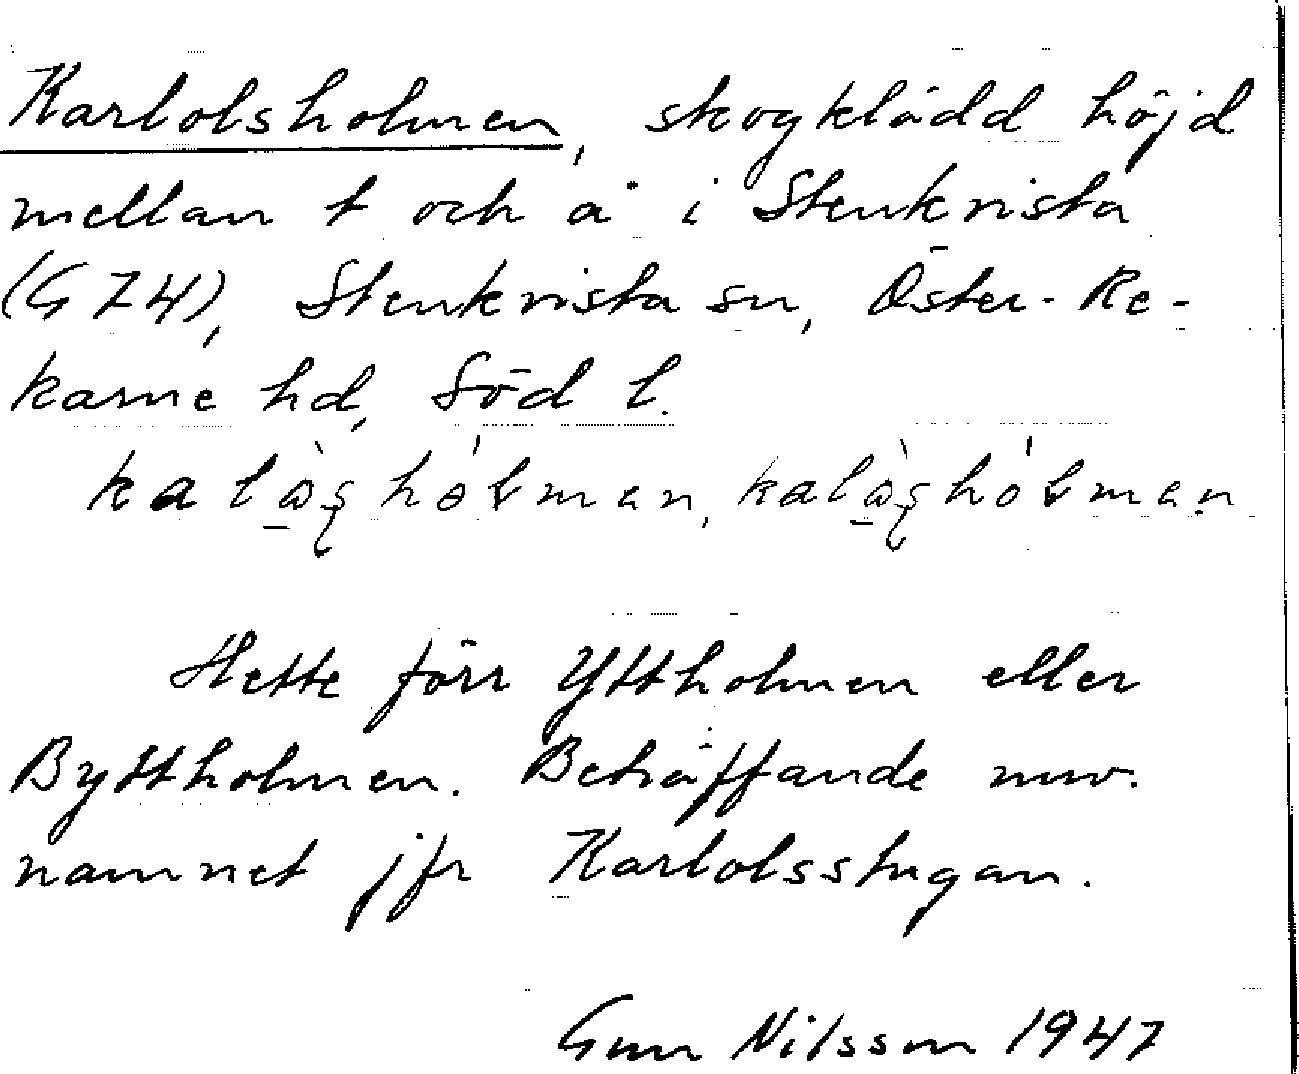 Karlolsholmen, skogklädd höjd
mellan t och å i Stenkvista
(G 74), Stenkvista sn, Öster-Re-
karne hd, Söd l.

Hette förr Yttholmen eller
Byttholmen. Beträffande nuv.
namnet jfr Karlolsstugan.
Gun Nilsson 1947